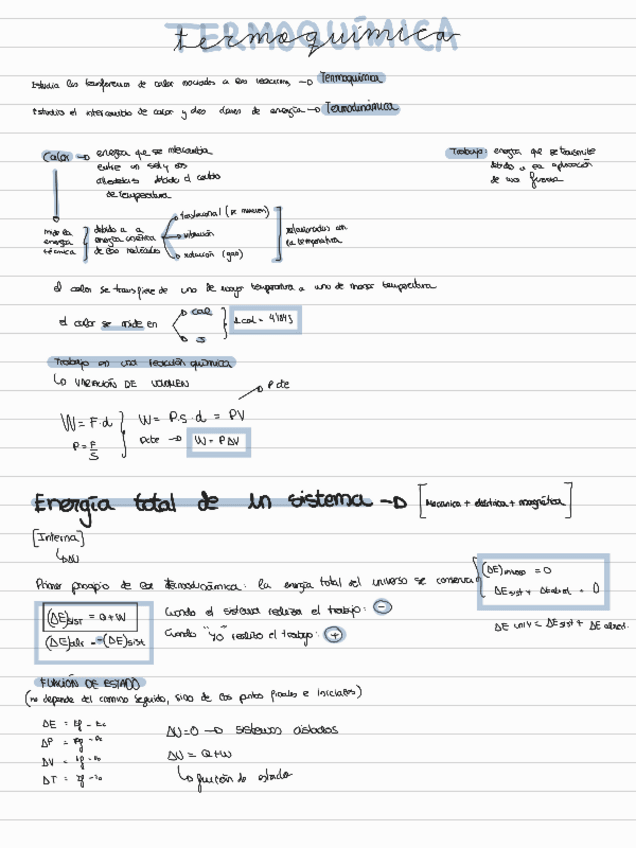 TERMOQUÍMICA
termoquímica
Estudia las transferencias de calor asociadas a las reacciones → Termoquímica
Estudia el intercambio de calor y otras clases de energía → Termodinámica
Calor → energía que se intercambia
entre un sist y sus
alrededores debido al cambio
de temperatura
Trabajo: energía que se transmite
debido a la aplicación
de una fuerza
mide la
energía
térmica
debido a la
energía cinética
de las moléculas
traslacional (se mueven)
vibración
rotación (gas)
relacionados con
la temperatura
el calor se transfiere de uno de mayor temperatura a uno de menor temperatura
el calor se mide en
cal
J
1 cal = 4'184J
Trabajo en una reacción química
↳ VARIACIÓN DE VOLUMEN
P cte
W = F·d
P = F/S
W = P·S·d = PV
Pcte → W = PΔV
Energía total de un sistema → [Mecánica + eléctrica + magnética]
[Interna]
↳ ΔU
Primer principio de la termodinámica: la energía total del universo se conserva
(ΔE)universo = 0
ΔE sist + ΔE alred = 0
ΔE univ = ΔE sist + ΔE alred.
(ΔE)sist = Q+W
(ΔE)alr = -(ΔE)sist
Cuando el sistema realiza el trabajo: (-)
Cuando "yo" realizo el trabajo: (+)
FUNCIÓN DE ESTADO
(no depende del camino seguido, sino de los puntos finales e iniciales)
ΔE = Ef - Eo
ΔP = Pf - Po
ΔV = Vf - Vo
ΔT = Tf - To
ΔU=0 → sistemas aislados
ΔU = Q+W
↳ función de estado